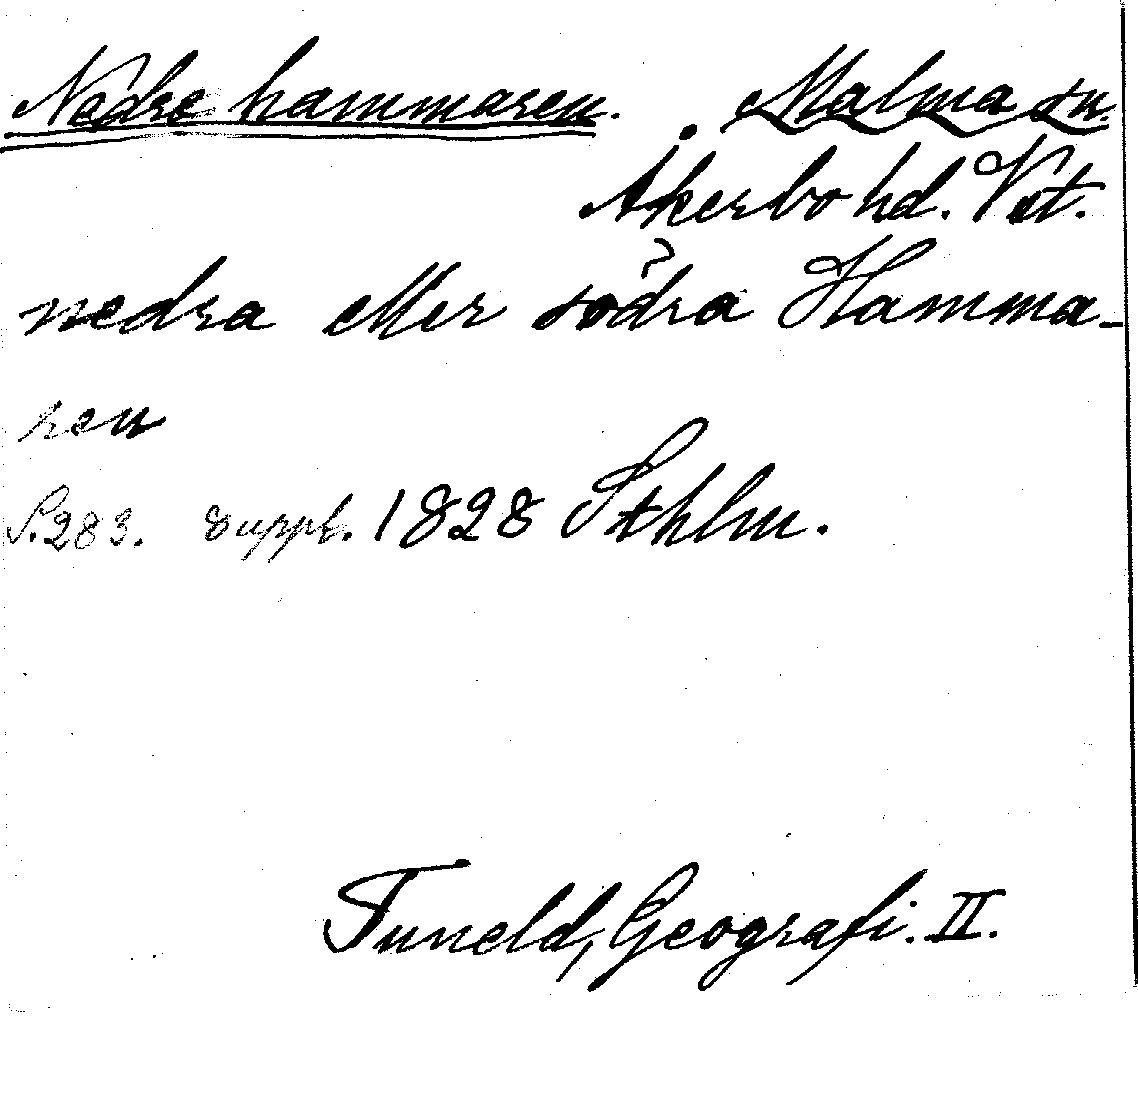 Nedre hammaren. Malma sn.
Åkerbo hd. Vst.
nedra eller södra Hamma-
ren
S. 283. Suppl. 1828 Sthlm.
Tuneld, Geografi. II.